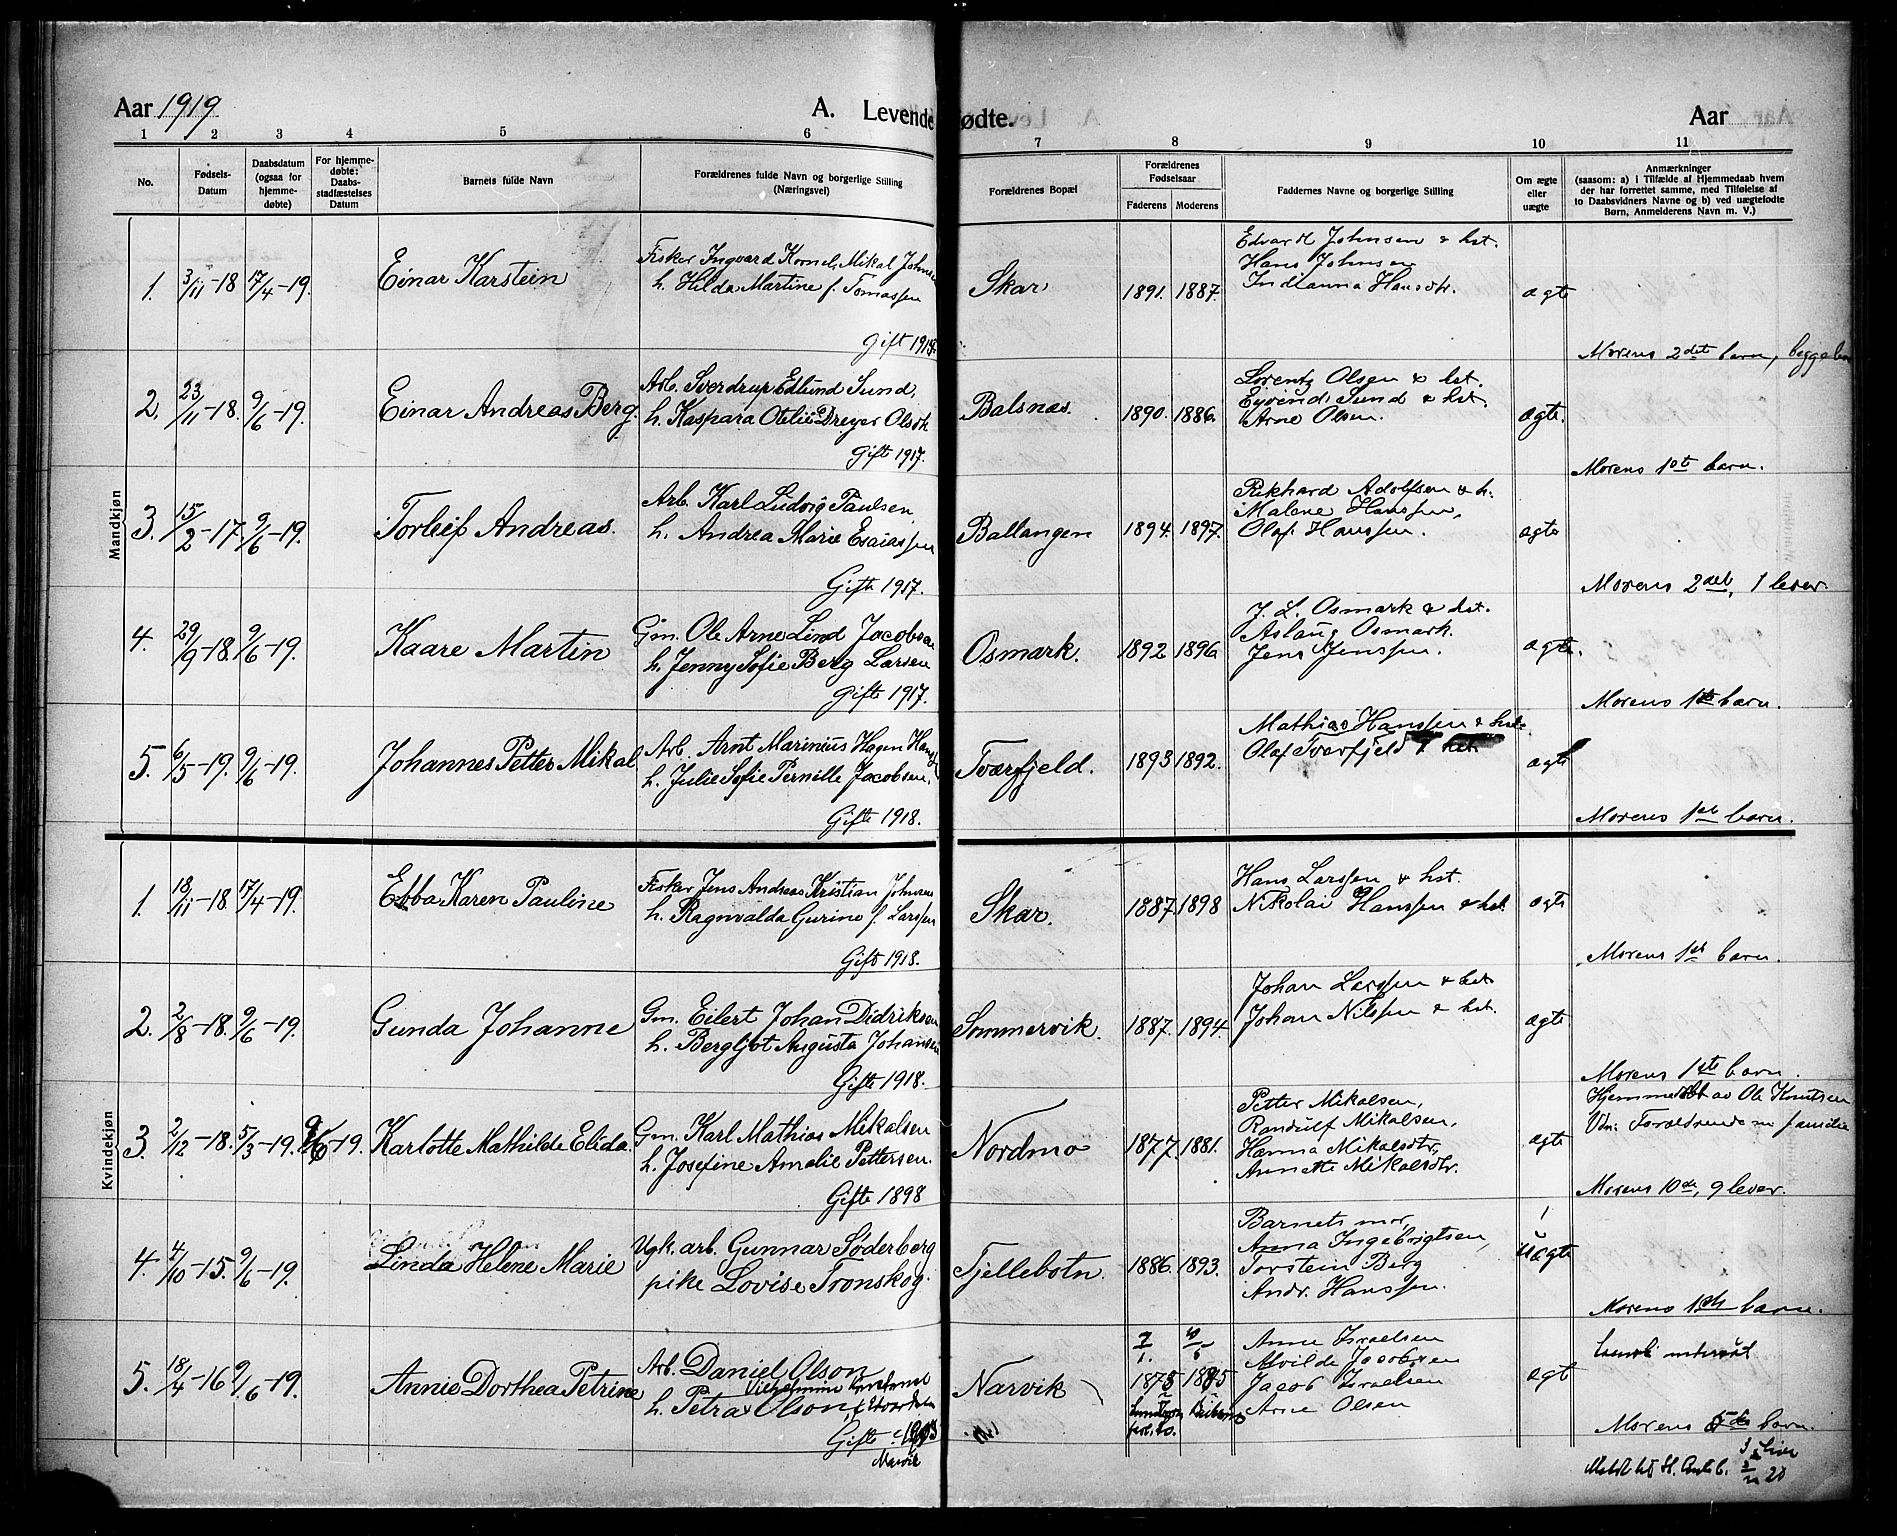 Aar 1919
A. Levendefødte.
Aar
1 2 3 4 5 6 7 8 9 10 11
No.
Fødsels-
Datum
Daabsdatum
(ogsaa for
hjemme-
døbte)
For hjemme-
døbte:
Daabs-
stadfæstelses
Datum
Barnets fulde Navn
Forældrenes fulde Navn og borgerlige Stilling
(Næringsvei)
Forældrenes Bopæl
Forældrenes
Fødselsaar
Faderens Moderens
Faddernes Navne og borgerlige Stilling
Om ægte
eller
uægte
Anmærkninger
(saasom: a) i Tilfælde af Hjemmedaab hvem
der har forrettet samme, med Tilføielse af
to Daabsvidners Navne og b) ved uægtefødte
Børn, Anmelderens Navn m. V.)
Mandkjøn
1. 3/11-18 17/4-19. Einar Karstein
Fisker Ingvard Kornel. Mikal Johnsen
h. Hilda Martine f. Tomassen
Gift 1918.
Skar 1891. 1887.
Edvard Johnsen & hst.
Hans Johnsen
Indianna Hansdtr.
ægte
Morens 2det barn, begge
2. 23/11-18. 9/6-19. Einar Andreas Berg.
Arb. Sverdrup Edlund Sund,
h. Kaspara Otelie Dreyer Olsdtr
Gift 1917.
Balsnes. 1890. 1886.
Lorentz Olsen & hst.
Eyvind Sund & hst.
Arne Olsen.
ægte.
Morens 1ste barn.
3. 15/2-17. 9/6-19. Torleif Andreas.
Arb. Karl Ludvig Paulsen,
h. Andrea Marie Esaiassen
Gifte 1917.
Ballangen 1894. 1897.
Rikhard Adolfsen & h.
Malene Hanssen,
Olaf Hanssen.
ægte
Morens 2det, 1 lever.
4. 29/9-18. 9/6-19. Kaare Martin
Gm. Ole Arne Lind Jacobsen
h. Jenny Sofie Berg Larsen
Gifte 1917.
Osmark. 1892 1896
J. L. Osmark & hst.
Aslaug Osmark.
Jens Jenssen.
ægte.
Morens 1ste barn.
5. 6/5-19. 9/6-19. Johannes Petter Mikal
Arb. Arnt Marinius Hagen Hansen
h. Julie Sofie Pernille Jacobsen.
Gifte 1918.
Tværfjeld. 1893 1892.
Mathias Hanssen & hst.
Olaf Tværfjeld
ægte
Morens 1ste barn.
Kvindekjøn
1. 18/11-18 17/4-19. Ebba Karen Pauline
Fisker Jens Andreas Kristian Johnsen
h. Ragnvalda Gurine f. Larssen
Gift 1918.
Skar. 1887. 1898
Hans Larssen & hst.
Nikolai Hanssen & hst
ægte
Morens 1ste barn.
2. 2/8-18. 9/6-19. Gunda Johanne
Gm. Eilert Johan Didriksen
h. Bergljot Augusta Johansen
Gifte 1918.
Sommervik. 1887. 1894.
Johan Larssen & hst
Johan Nilssen & hst.
ægte
Morens 1ste barn.
3. 2/12-18. 5/3-19. 9/6-19. Karlotte Mathilde Elida.
Gm. Karl Mathias Mikalsen
h. Josefine Amalie Pettersen.
Gifte 1898
Nordmo 1877. 1881.
Petter Mikalsen,
Randulf Mikalsen,
Hanna Mikalsdtr,
Annette Mikalsdtr.
ægte
Hjemmedøbt av Ole Knutsen
Vdn: Forældrende m familie
Morens 10de, 9 lever.
4. 4/10-15. 9/6-19. Linda Helene Marie
Ugk. arb. Gunnar Söderberg
pike Lovise Tronskog.
Fjellebotn. 1886. 1893.
Barnets mor,
Anna Ingebrigtsen,
Torstein Berg
Andr. Hanssen.
uægte
Morens 1ste barn.
5. 18/4-16 9/6-19. Annie Dorthea Petrine
Arb. Daniel Olson
h. Petra Olson,
Gifte 1905
Narvik
Narvik 1875 1885
Anne Israelsen
Alvilde Jacobsen
Jacob Israelsen
Arne Olsen
ægt
Morens 5de barn.
3 lever